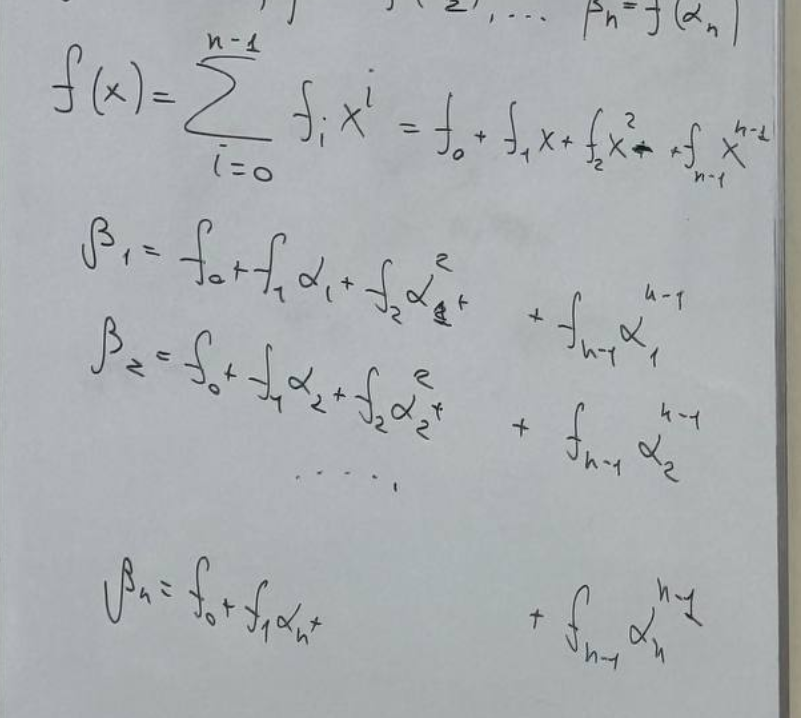 β_n = f(α_n)
f(x) = \sum_{i=0}^{n-1} f_i x^i = f_0 + f_1 x + f_2 x^2 + + f_{n-1} x^{n-1}
β_1 = f_0 + f_1 α_1 + f_2 α_1^2 + + f_{n-1} α_1^{n-1}
β_2 = f_0 + f_1 α_2 + f_2 α_2^2 + + f_{n-1} α_2^{n-1}
.....
β_n = f_0 + f_1 α_n + + f_{n-1} α_n^{n-1}